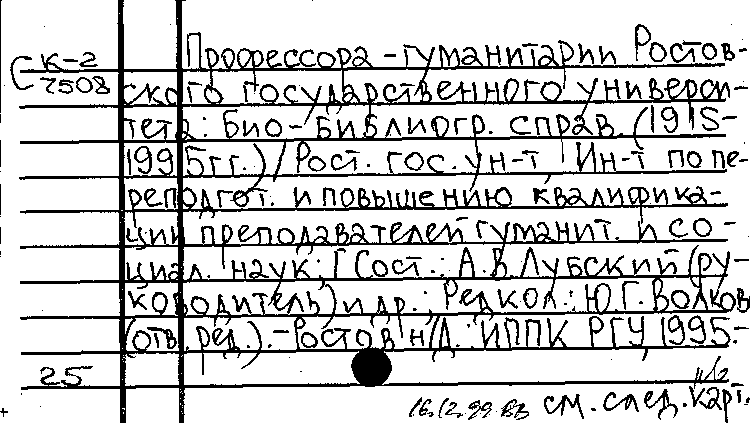 С К-2
7508
Профессора-гуманитарии Ростов-
ского государственного универси-
тета: Био-библиогр. справ. (1915-
1995гг.)/Рост. гос. ун-т, Ин-т по пе-
реподгот. и повышению квалифика-
ции преподавателей гуманит. и со-
циал. наук; [Сост.: А.В.Лубский (ру-
ководитель) и др.; Редкол.: Ю.Г.Волков
(отв. ред.).-Ростов н/Д.: ИППК РГУ, 1995.-
25
16.12.99 см. след. карт.